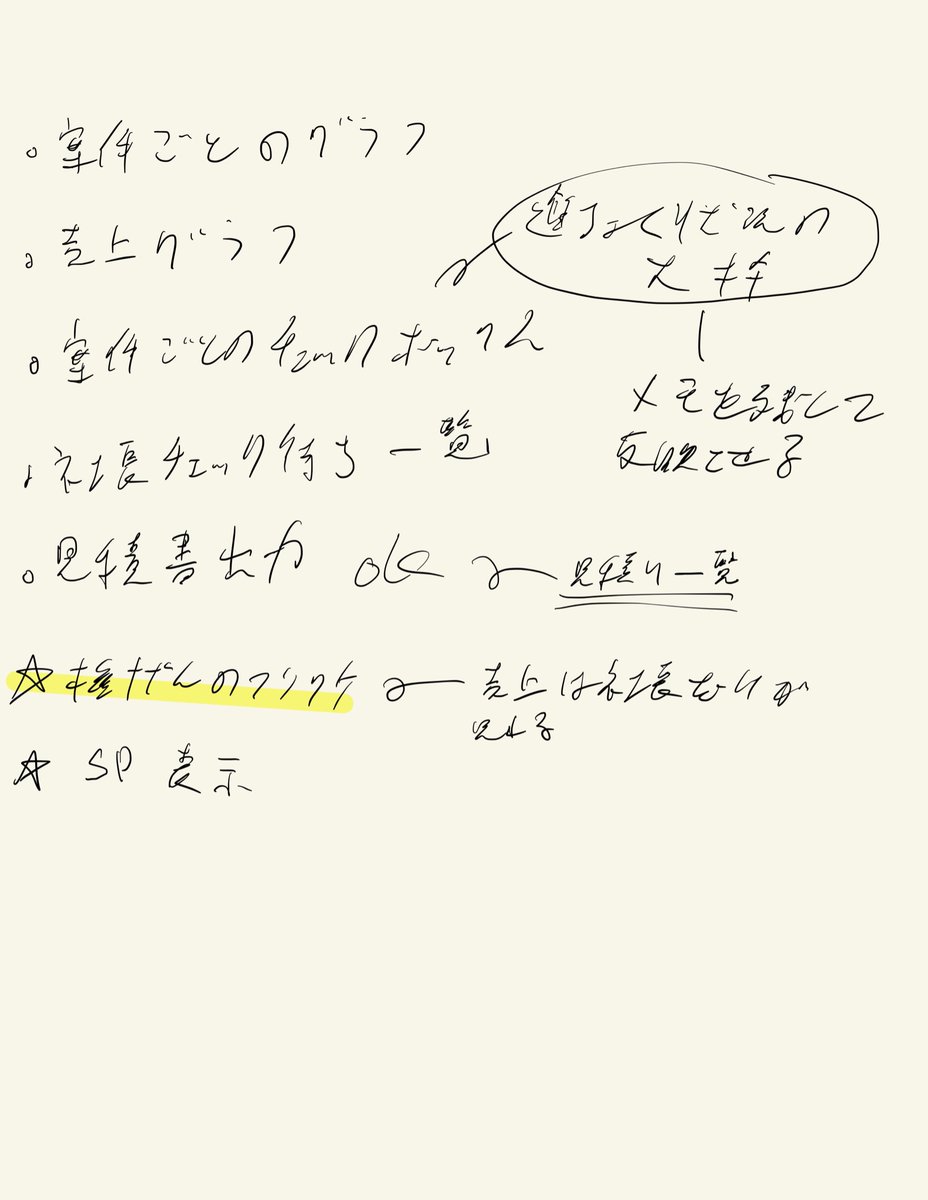 。案件ごとのグラフ
。売上グラフ
。案件ごとのチェックボックス
大枠
メモを
反映させる
。社長チェック待ち一覧
。見積書出力 OK 〜 見積り一覧
☆ 権げんのフリワケ 〜 売上は社長だけが
見れる
☆ SP 表示